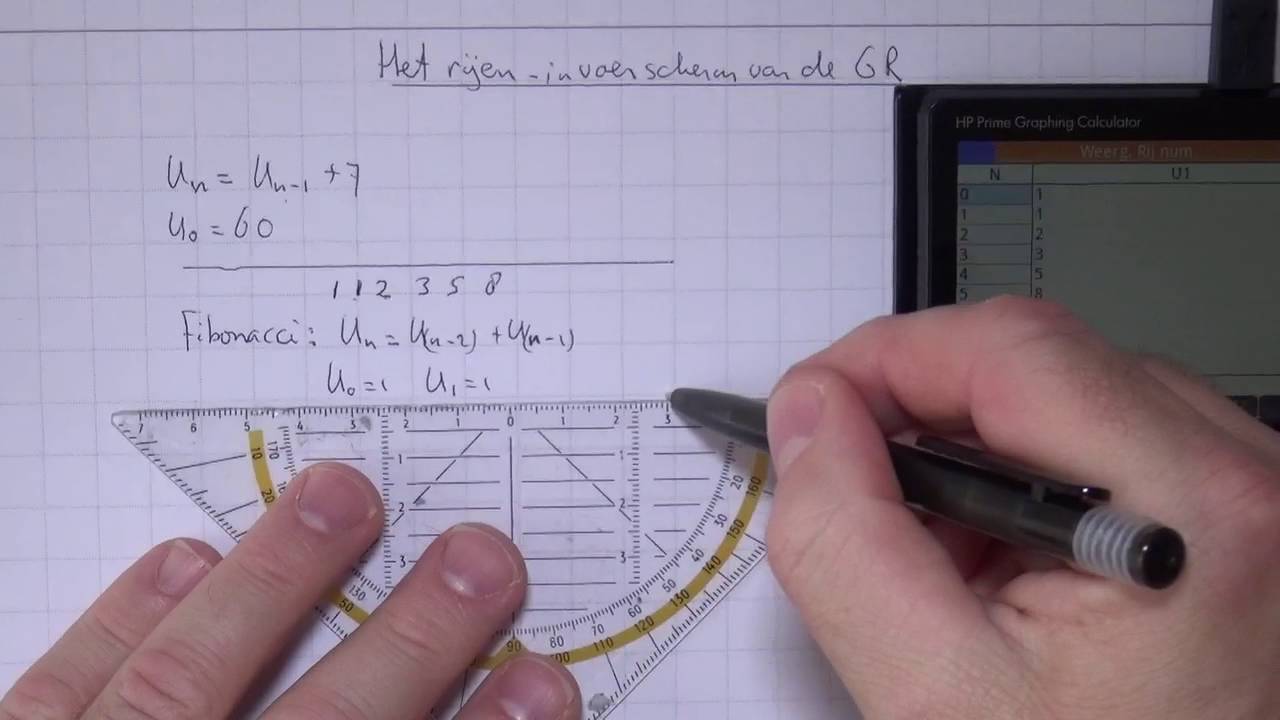 Het rijen-invoerscherm van de GR
HP Prime Graphing Calculator
Weerg. Rij num
N U1
0 1
1 1
2 2
3 3
4 5
5 8
Un = Un-1 + 7
U0 = 60
1 1 2 3 5 8
Fibonacci: Un = U(n-2) + U(n-1)
U0 = 1 U1 = 1
7 6 5 4 3 2 1 0 1 2 3
10 170
20
1 1
2 2
3 3
130
50
90 80 70 60 50 40 30 20
100 110 120 130 140 150 160